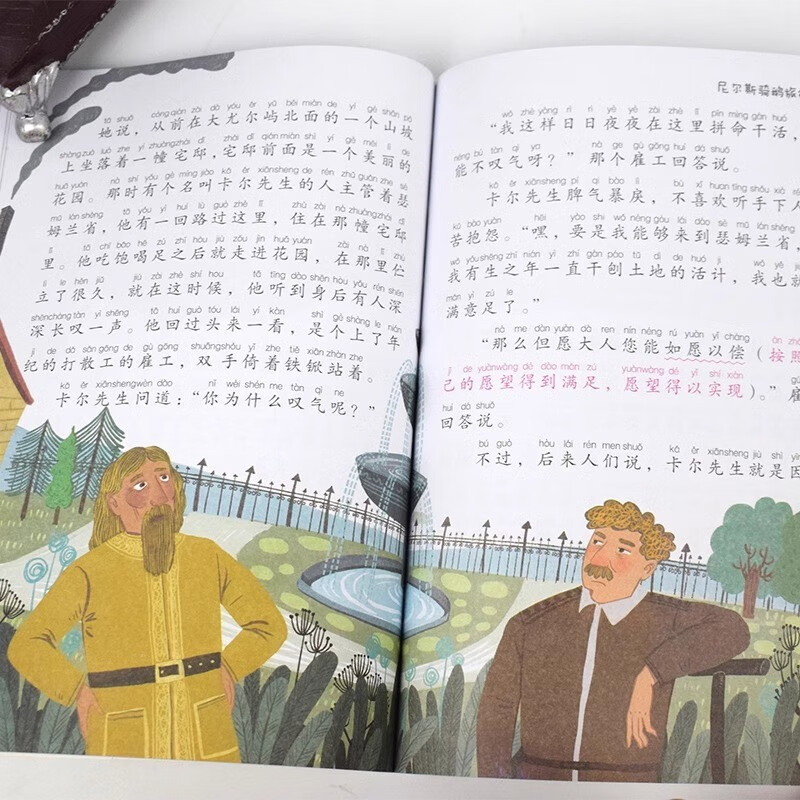 tā shuō cóngqián zài dà yóu ěr yǔ běi miàn de yí gè shān pō
她说，从前在大尤尔屿北面的一个山坡
shàng zuò luò zhe yí zhuàng zhái dǐ zhái dǐ qián miàn shì yí gè měi lì de
上坐落着一幢宅邸，宅邸前面是一个美丽的
huā yuán nà shí yǒu gè míng jiào kǎ ěr xiān sheng de rén zhǔ guǎn zhe sè
花园。那时有个名叫卡尔先生的人主管着瑟
mǔ lán shěng tā yǒu yì huí lù guò zhè lǐ zhù zài nà zhuàng zhái dǐ
姆兰省，他有一回路过这里，住在那幢宅邸
lǐ tā chī bǎo hē zú zhī hòu jiù zǒu jìn huā yuán zài nà lǐ zhù
里。他吃饱喝足之后就走进花园，在那里伫
lì le hěn jiǔ jiù zài zhè shí hou tā tīng dào shēn hòu yǒu rén shēn
立了很久，就在这时候，他听到身后有人深
shēn cháng tàn yì shēng tā huí guò tóu lái yí kàn shì gè shàng le nián
深长叹一声。他回过头来一看，是个上了年
jì de dǎ sǎn gōng de gù gōng shuāng shǒu yǐ zhe tiě xiān zhàn zhe
纪的打散工的雇工，双手倚着铁锨站着。
kǎ ěr xiān sheng wèn dào nǐ wèi shén me tàn qì ne
卡尔先生问道：“你为什么叹气呢？”
尼尔斯骑鹅旅
wǒ zhè yàng rì rì yè yè zài zhè lǐ pīn mìng gàn huó
“我这样日日夜夜在这里拼命干活，
néng bú tàn qì ya nà ge gù gōng huí dá shuō
能不叹气呀？”那个雇工回答说。
kǎ ěr xiān sheng pí qi bào lì bù xǐ huan tīng shǒu xià rén
卡尔先生脾气暴戾，不喜欢听手下人
kǔ bào yuàn hēi yào shi wǒ néng gòu lái dào sè mǔ lán shěng
苦抱怨。“嘿，要是我能够来到瑟姆兰省，
wǒ yǒu shēng zhī nián yì zhí gàn páo tǔ dì de huó jì wǒ yě jiù
我有生之年一直干刨土地的活计，我也就
mǎn yì zú le
满意足了。”
nà me dàn yuàn dà ren nín néng rú yuàn yǐ cháng àn zhào
“那么但愿大人您能如愿以偿（按照
jǐ de yuàn wàng dé dào mǎn zú yuàn wàng dé yǐ shí xiàn
己的愿望得到满足，愿望得以实现）。”雇
huí dá shuō
回答说。
bú guò hòu lái rén men shuō kǎ ěr xiān sheng jiù shì yīn
不过，后来人们说，卡尔先生就是因